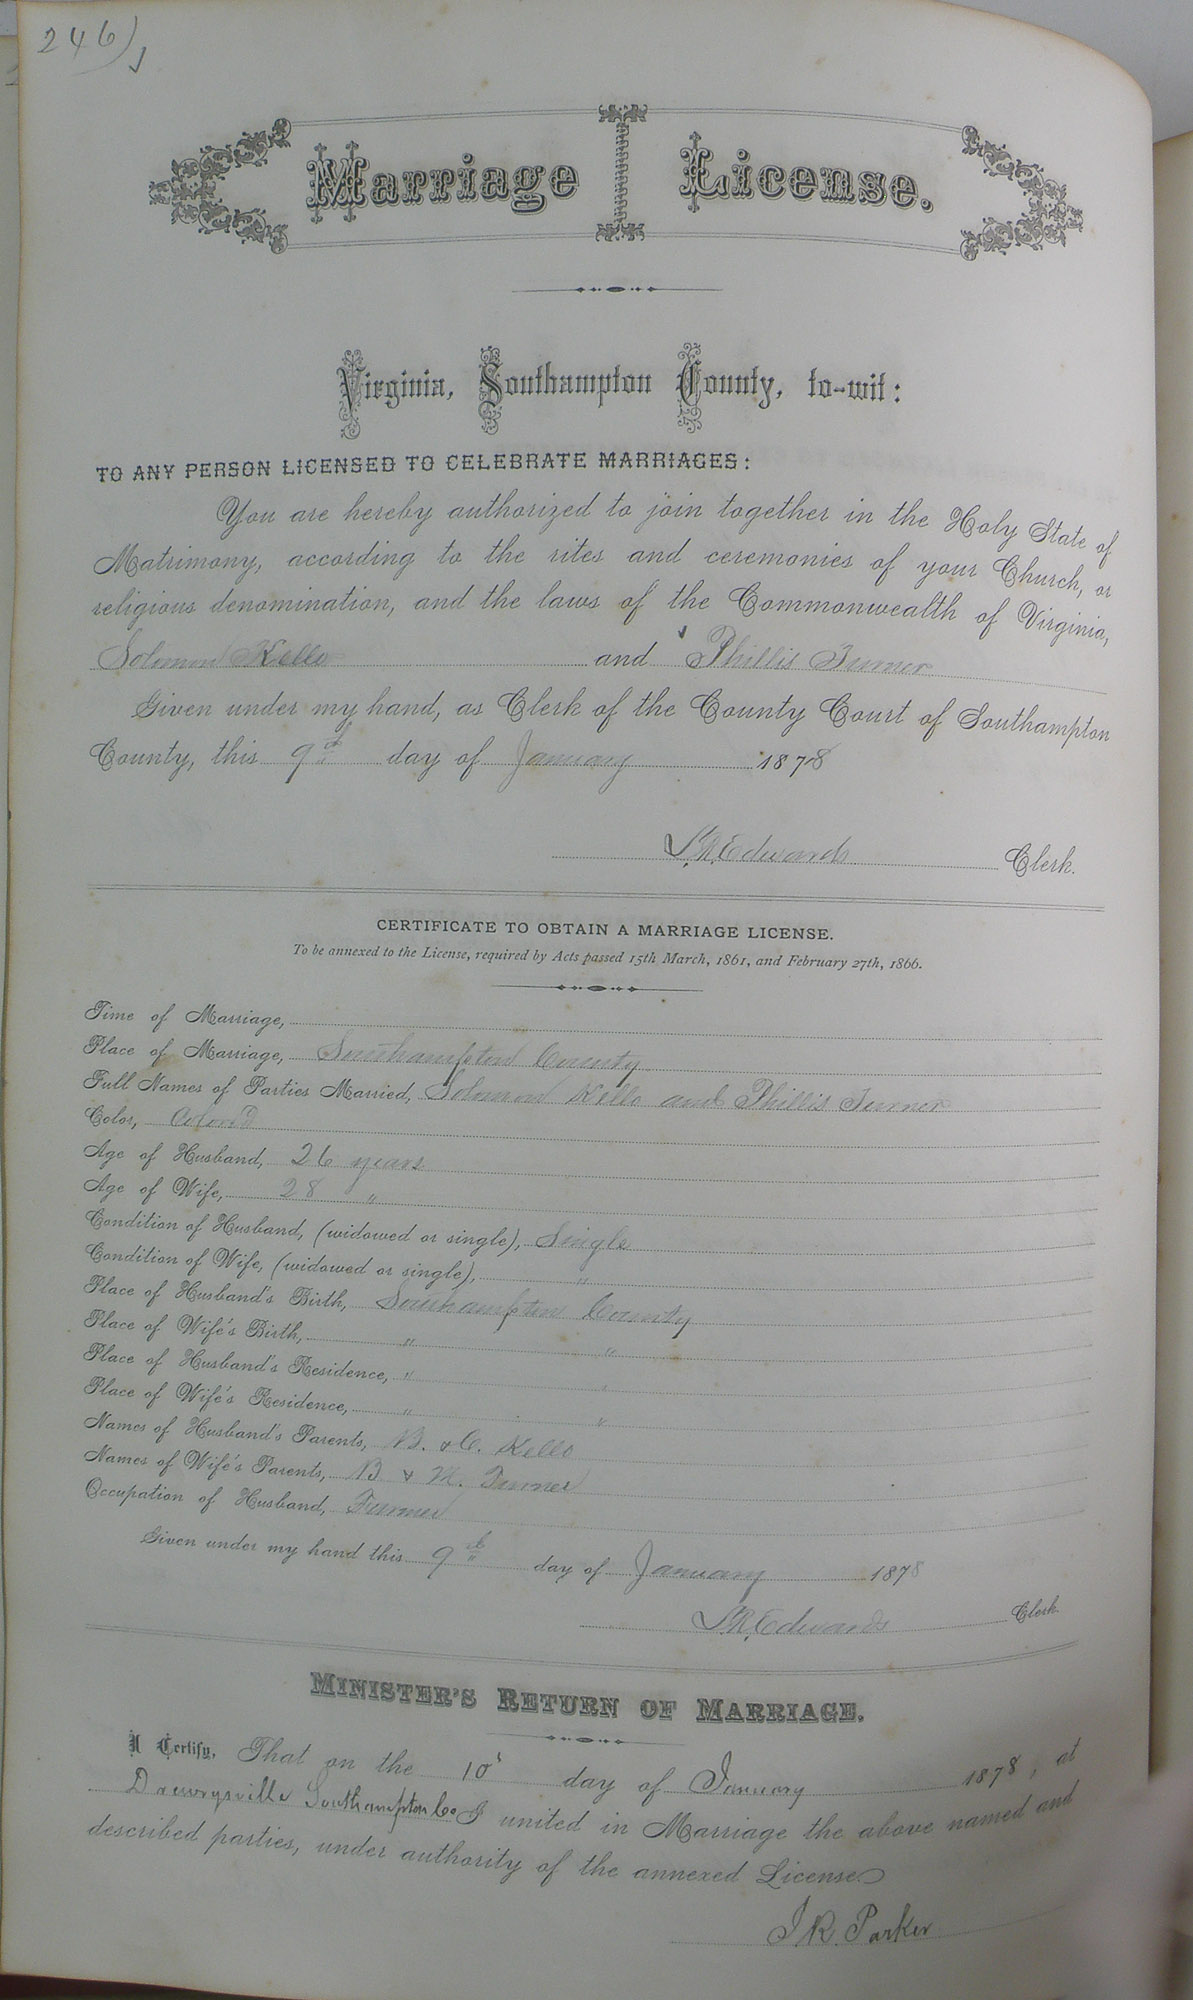 246)
Marriage License.
Virginia, Southampton County, to-wit:
TO ANY PERSON LICENSED TO CELEBRATE MARRIAGES:
You are hereby authorized to join together in the Holy State of
Matrimony, according to the rites and ceremonies of your Church, or
religious denomination, and the laws of the Commonwealth of Virginia,
Solomon Kello and Phillis Turner
Given under my hand, as Clerk of the County Court of Southampton
County, this 9th day of January 1878
L.R. Edwards Clerk.
CERTIFICATE TO OBTAIN A MARRIAGE LICENSE.
To be annexed to the License, required by Acts passed 15th March, 1861, and February 27th, 1866.
Time of Marriage,
Place of Marriage, Southampton County
Full Names of Parties Married, Solomon Kello and Phillis Turner
Color, Colored
Age of Husband, 26 years
Age of Wife, 28 "
Condition of Husband, (widowed or single), Single
Condition of Wife, (widowed or single), "
Place of Husband's Birth, Southampton County
Place of Wife's Birth, " "
Place of Husband's Residence, " "
Place of Wife's Residence, " "
Names of Husband's Parents, B. & C. Kello
Names of Wife's Parents, B & M. Turner
Occupation of Husband, Farmer
Given under my hand this 9th day of January 1878
L.R. Edwards Clerk.
MINISTER'S RETURN OF MARRIAGE.
I Certify, That on the 10 day of January 1878, at
Drewrysville Southampton Co I united in Marriage the above named and
described parties, under authority of the annexed License
J R Parker